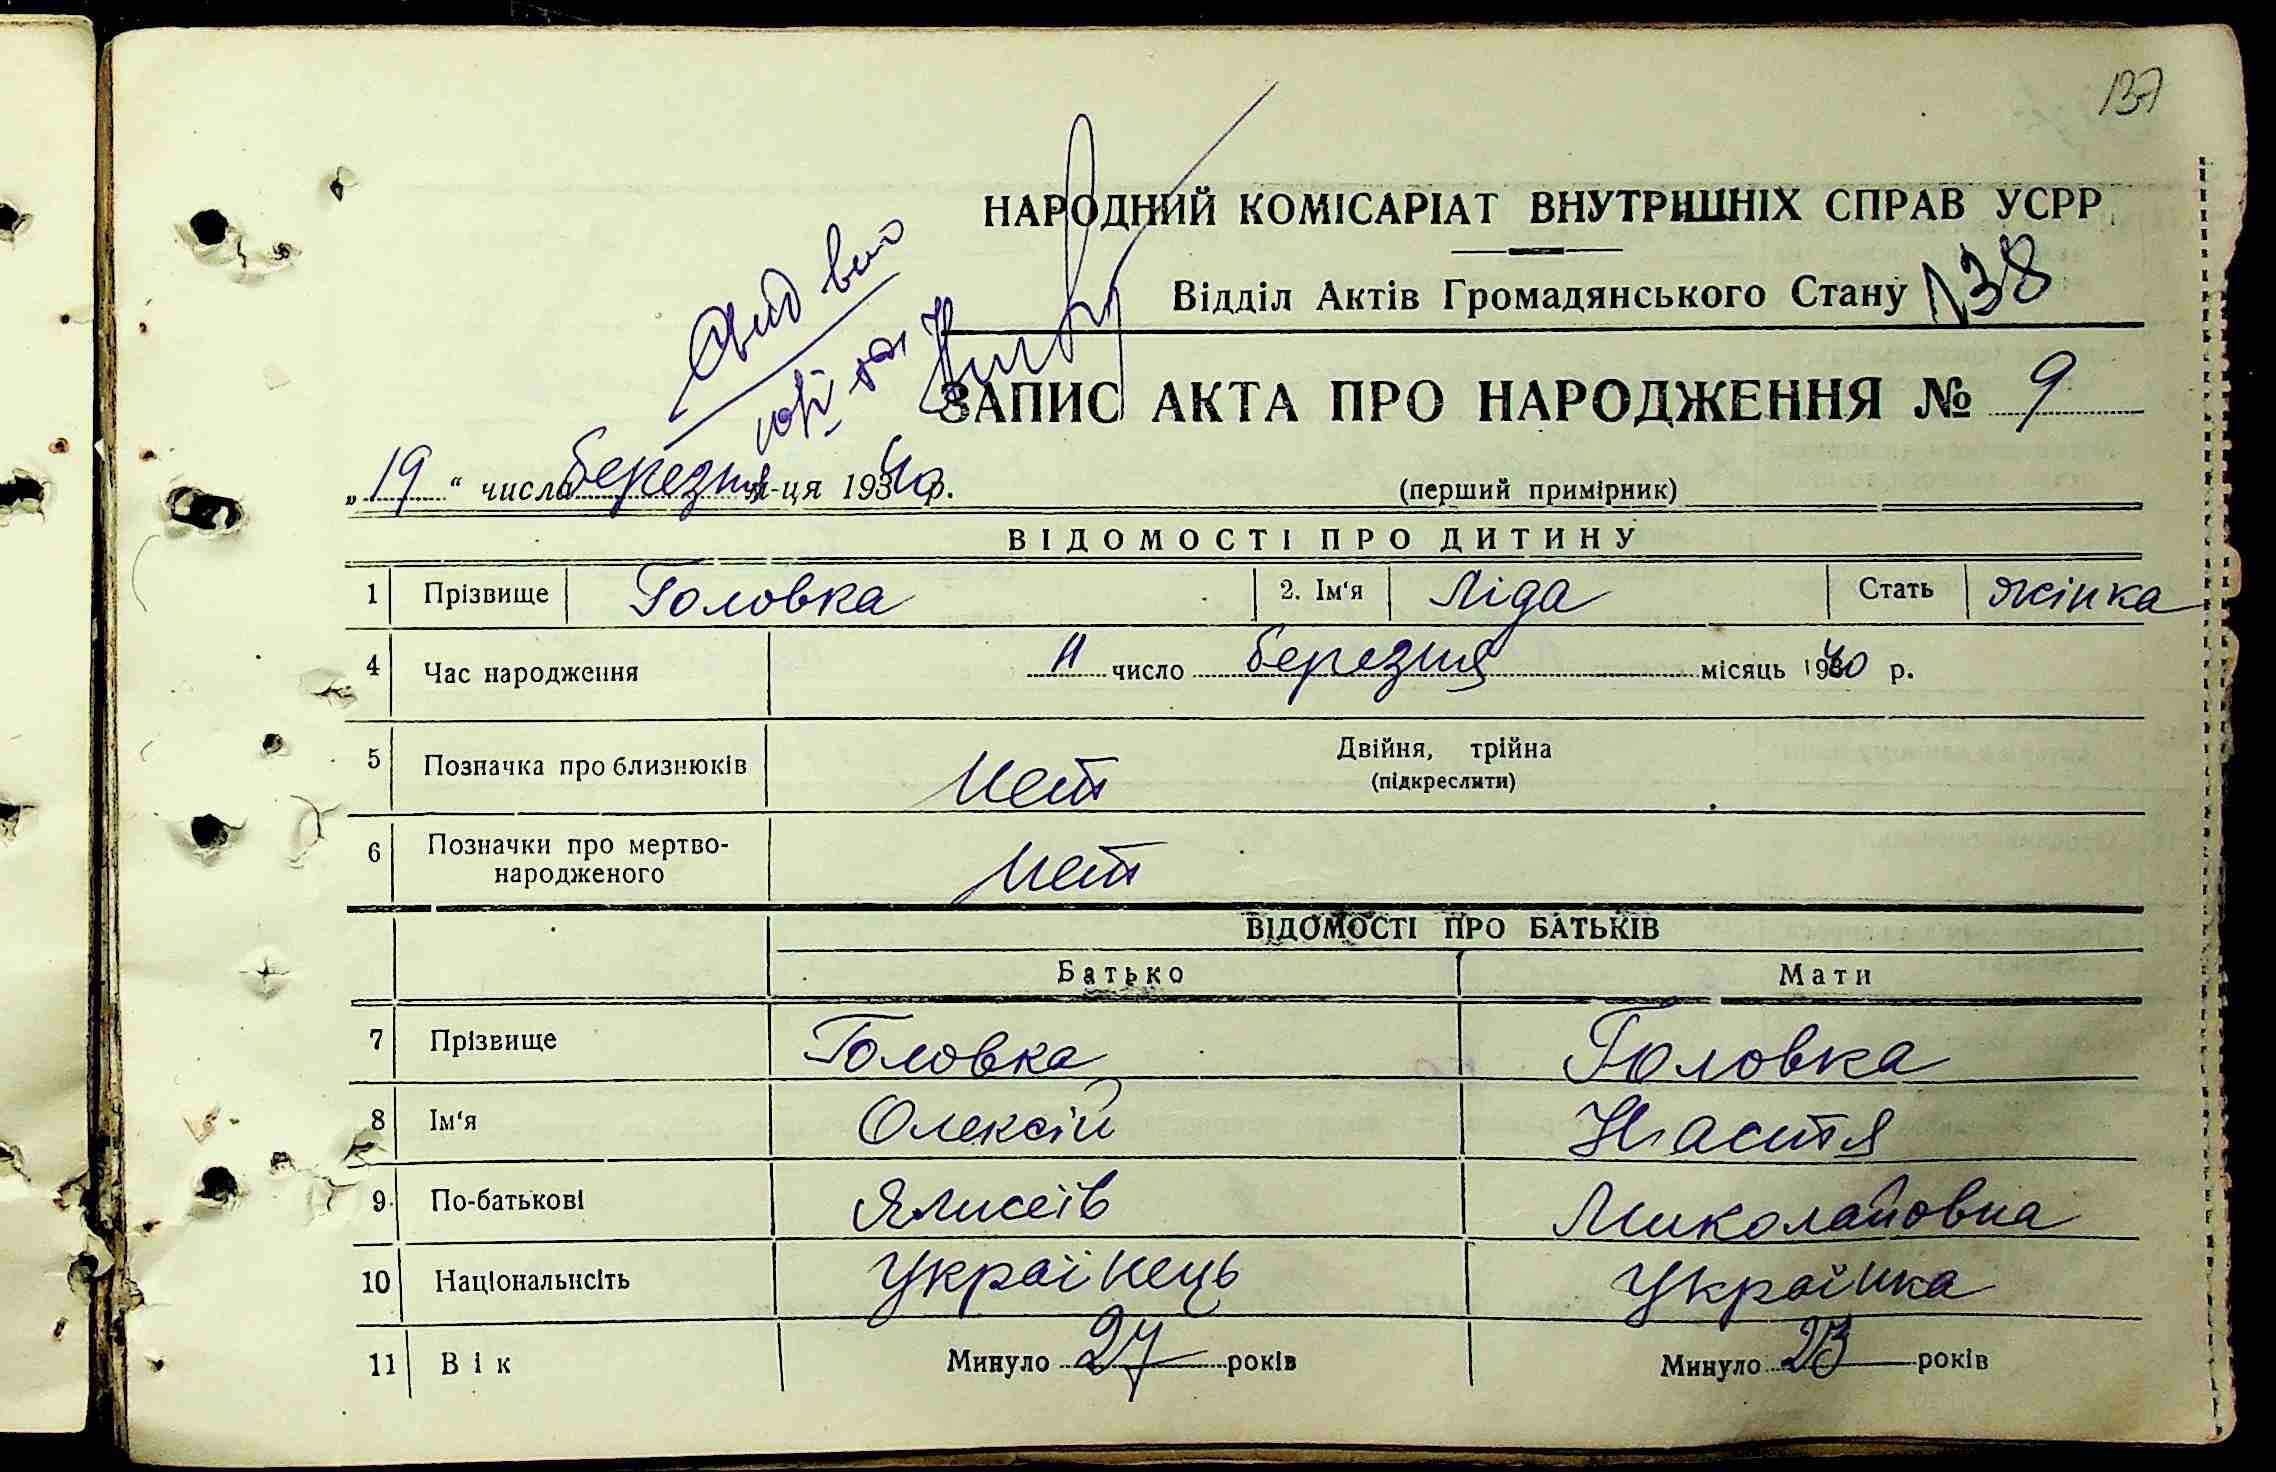 137
НАРОДНИЙ КОМІСАРІАТ ВНУТРІШНІХ СПРАВ УСРР
Відділ Актів Громадянського Стану 138
ЗАПИС АКТА ПРО НАРОДЖЕННЯ № 9
„19“ число березня м-ця 1940 р. (перший примірник)
ВІДОМОСТІ ПРО ДИТИНУ
1 Прізвище Головка 2. Ім'я Ліда Стать жінка
4 Час народження 11 число березня місяць 1940 р.
5 Позначка про близнюків нет Двійня, трійна
(підкреслити)
6 Позначки про мертво-
народженого нет
ВІДОМОСТІ ПРО БАТЬКІВ
Батько Мати
7 Прізвище Головка Головка
8 Ім'я Олексій Настя
9 По-батькові Ялисеів Миколайовна
10 Національність Українець Українка
11 Вік Минуло 27 років Минуло 23 років